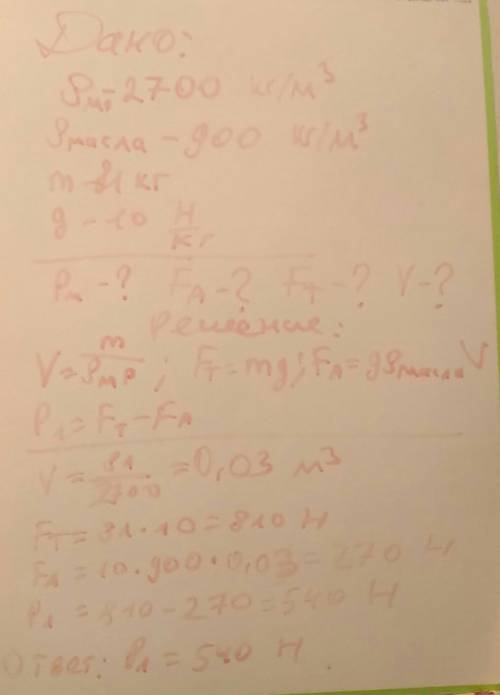 Дано:
ρмр - 2700 кг/м³
ρмасла - 900 кг/м³
m - 81 кг
g - 10 Н/кг
P₁ - ? FА - ? FТ - ? V - ?
Решение:
V = m/ρмр ; FТ = mg ; FА = gρмаслаV
P₁ = FТ - FА
V = 81/2700 = 0,03 м³
FТ = 81·10 = 810 Н
FА = 10·900·0,03 = 270 Н
P₁ = 810 - 270 = 540 Н
Ответ: P₁ = 540 Н.